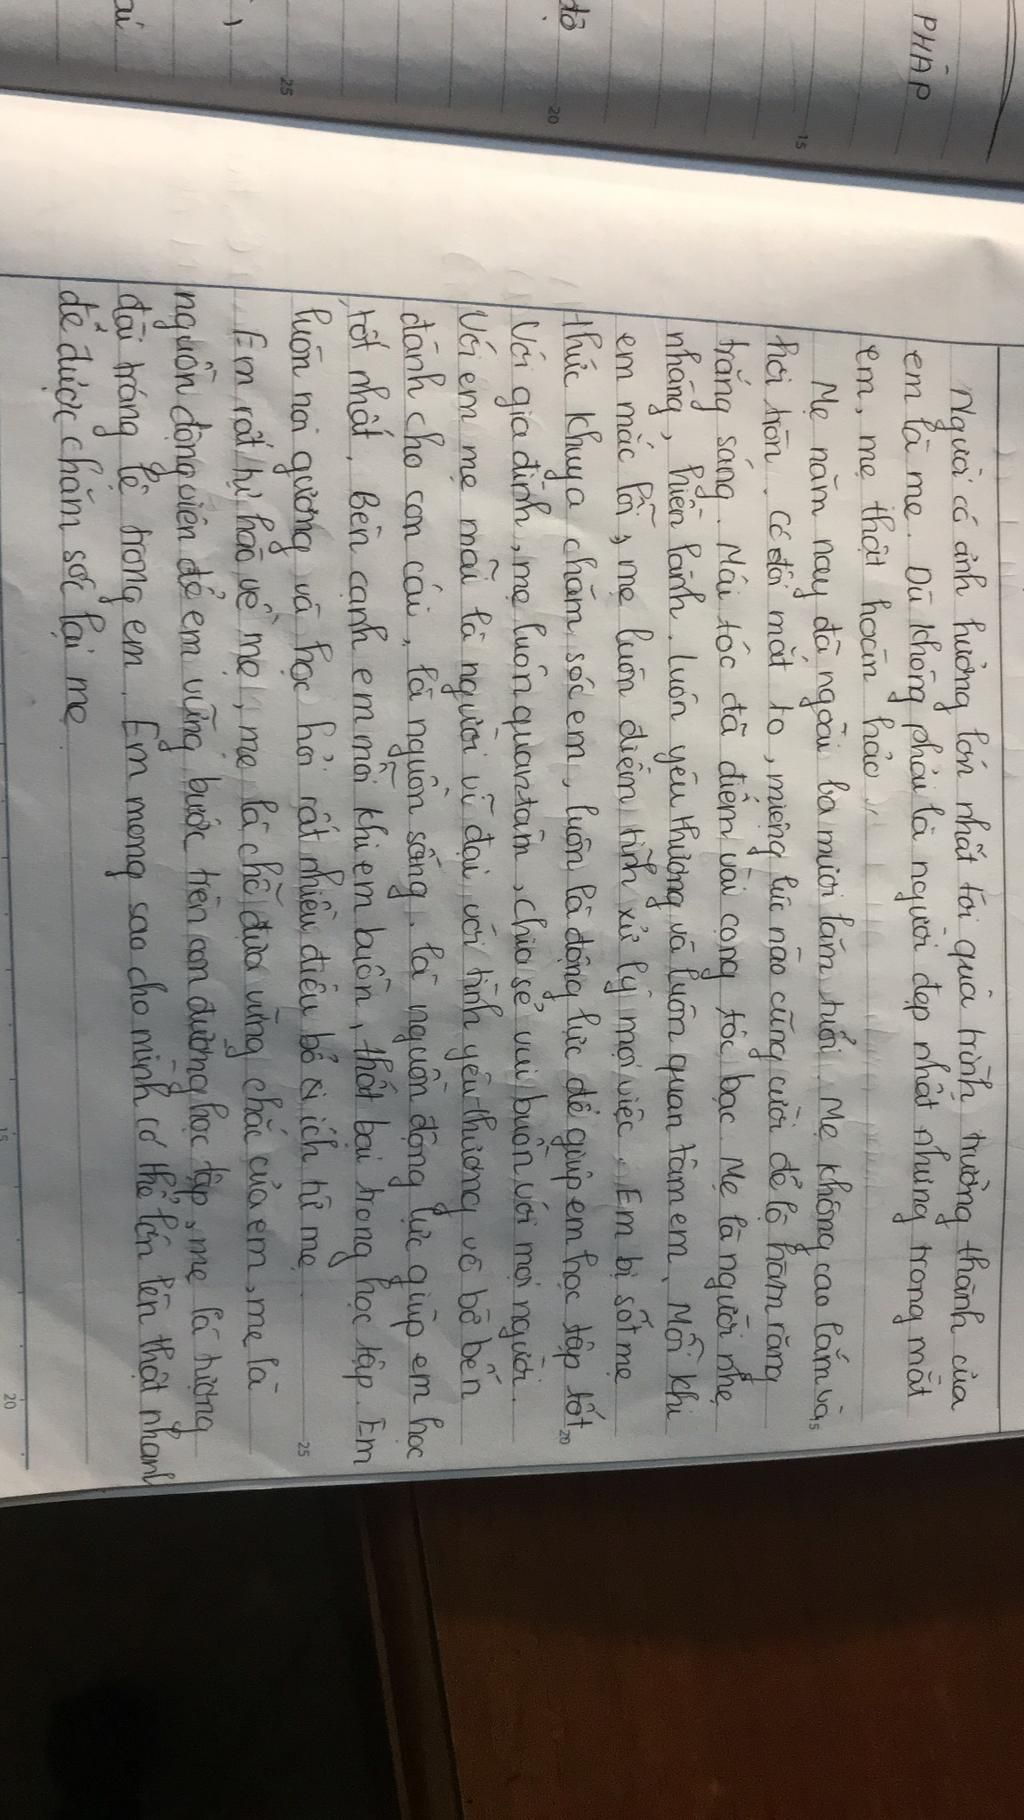 PHÁP
đõ
Người có ảnh hưởng lớn nhất tới quá trình trưởng thành của
em là mẹ. Dù không phải là người đẹp nhất nhưng trong mắt
em, mẹ thật hoàn hảo.
Mẹ năm nay đã ngoài ba mươi lăm tuổi. Mẹ không cao lắm và
hơi tròn. Có đôi mắt to, miệng lúc nào cũng cười để lộ hàm răng
trắng sáng. Mái tóc đã điểm vài cọng tóc bạc. Mẹ là người nhẹ
nhàng, hiền lành, luôn yêu thương và luôn quan tâm em. Mỗi khi
em mắc lỗi, mẹ luôn điềm tĩnh xử lý mọi việc. Em bị sốt mẹ
thức khuya chăm sóc em, luôn là động lực để giúp em học tập tốt
Với gia đình, mẹ luôn quan tâm, chia sẻ vui buồn với mọi người.
Với em mẹ mãi là người vĩ đại với tình yêu thương vô bờ bến
dành cho con cái, là nguồn sống, là nguồn động lực giúp em học
tốt nhất, bên cạnh em mỗi khi em buồn, thất bại trong học tập. Em
luôn noi gương và học hỏi rất nhiều điều bổ ích từ mẹ.
Em rất tự hào về mẹ, mẹ là chỗ dựa vững chắc của em, mẹ là
nguồn động viên để em vững bước trên con đường học tập, mẹ là tượng
đài tráng lệ trong em. Em mong sao cho mình có thể lớn lên thật nhanh
để được chăm sóc lại mẹ
15
20
25
15
20
25
15
20